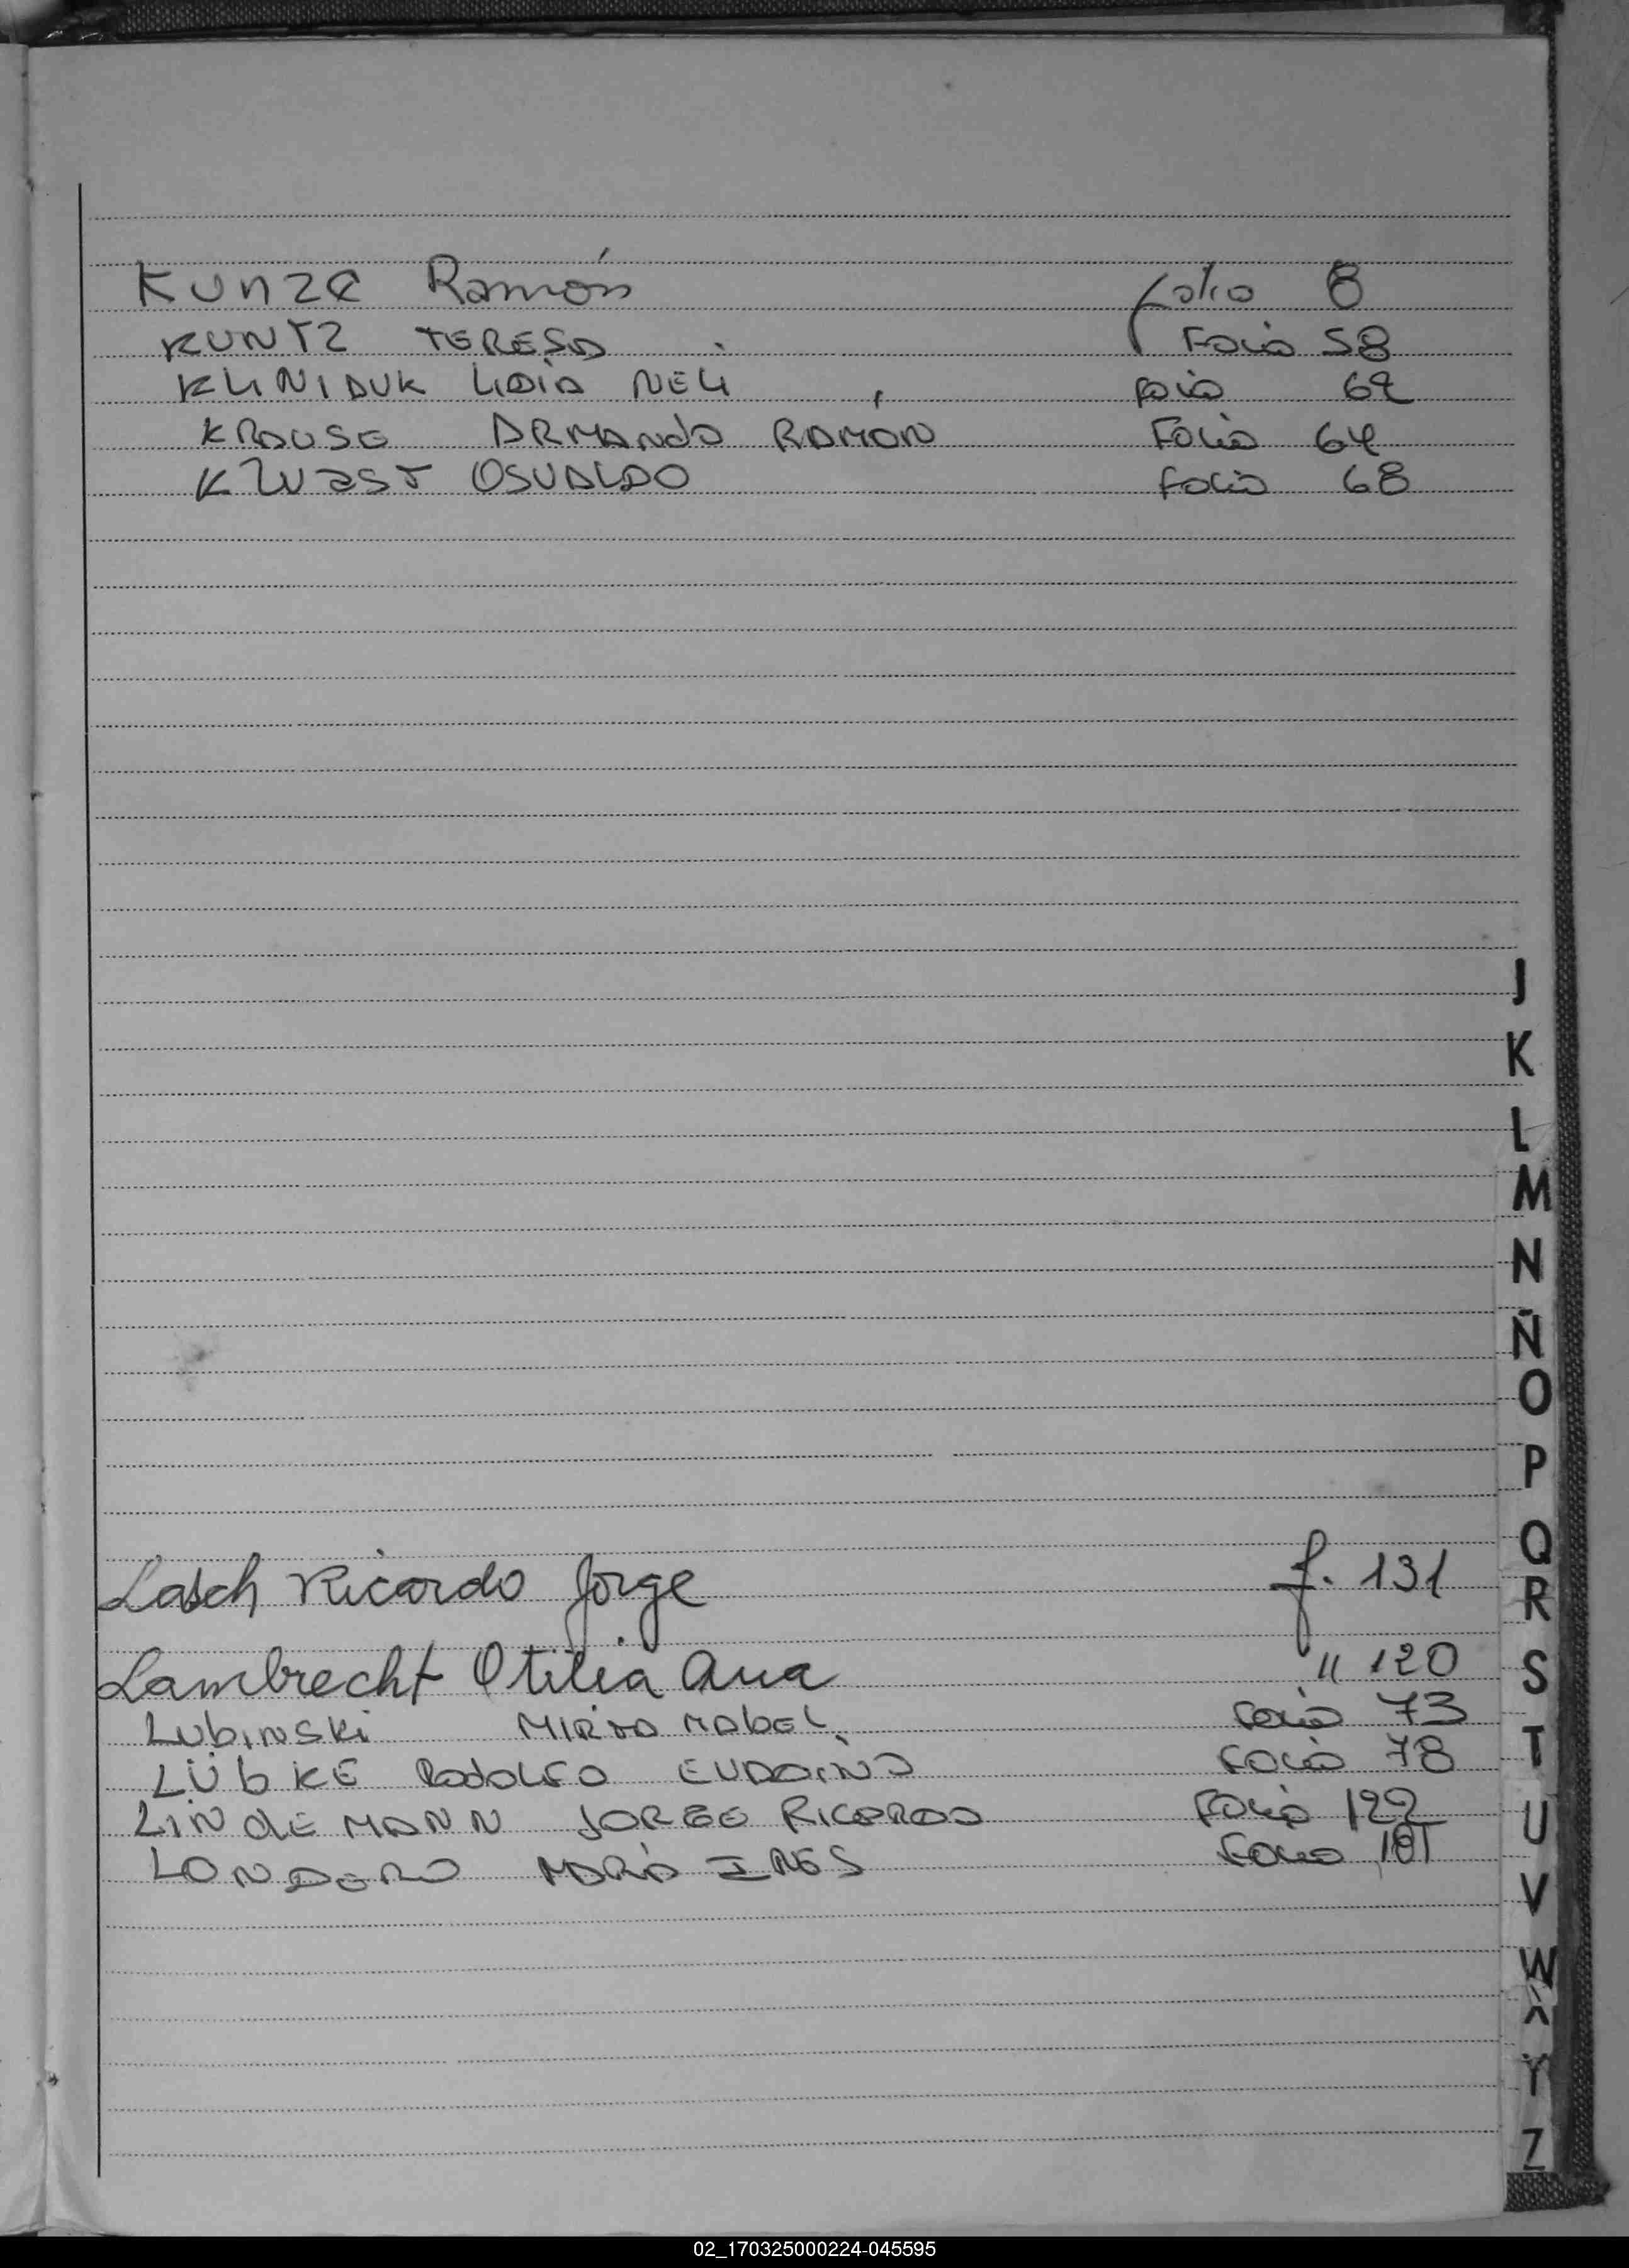 Kunze Ramón folio 8
KUNTZ TERESA Folio 58
KLINIDUK LIDIA NELI folio 62
KRAUSE ARMANDO RAMON Folio 64
OSVALDO folio 68
J
K
L
M
N
Ñ
O
P
Q
Lasch Ricardo Jorge f. 131
R
Lambrecht Otilia Ana " 120
S
LUBINSKI MIRTA MABEL folio 73
T
LÜBKE RODOLFO folio 78
LINDEMANN JORGE RICARDO Folio 122
U
LONDERO MARIA INES folio
V
W
X
Y
Z
02_170325000224-045595